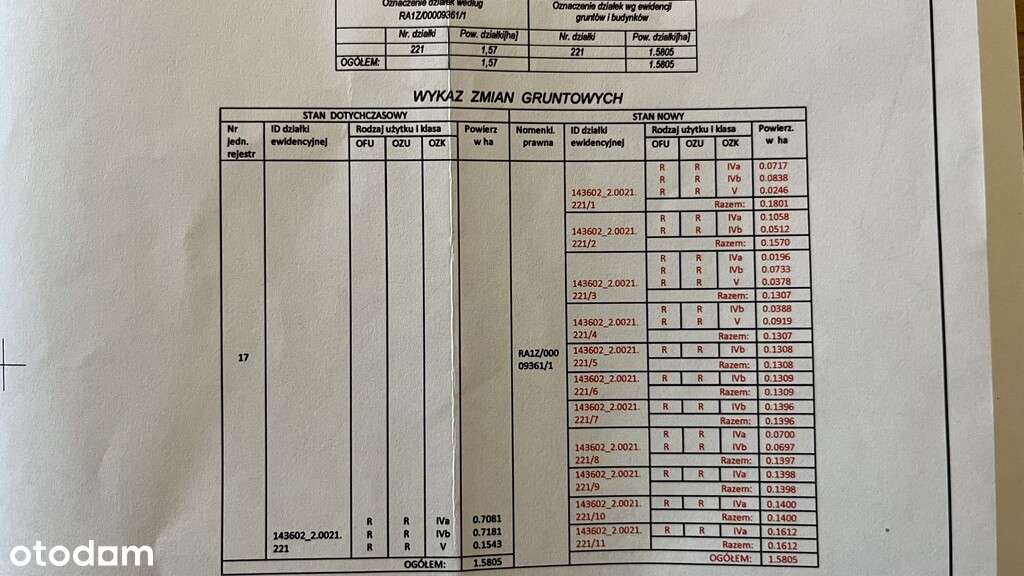 Oznaczenie działek według
RA1Z/00009361/1
Oznaczenie działek wg ewidencji
gruntów i budynków
Nr. działki Pow. działki[ha] Nr. działki Pow. działki[ha]
221 1,57 221 1.5805
OGÓŁEM: 1,57 1.5805
WYKAZ ZMIAN GRUNTOWYCH
STAN DOTYCHCZASOWY STAN NOWY
Nr
jedn.
rejestr
ID działki
ewidencyjnej
Rodzaj użytku i klasa
OFU OZU OZK
Powierz
w ha
Nomenkl.
prawna
ID działki
ewidencyjnej
Rodzaj użytku i klasa
OFU OZU OZK
Powierz.
w ha
17
143602_2.0021.
221
R R IVa 0.7081
R R IVb 0.7181
R R V 0.1543
OGÓŁEM: 1.5805
RA1Z/000
09361/1
R R IVa 0.0717
R R IVb 0.0838
143602_2.0021. R R V 0.0246
221/1 Razem: 0.1801
R R IVa 0.1058
143602_2.0021. R R IVb 0.0512
221/2 Razem: 0.1570
R R IVa 0.0196
R R IVb 0.0733
143602_2.0021. R R V 0.0378
221/3 Razem: 0.1307
R R IVb 0.0388
143602_2.0021. R R V 0.0919
221/4 Razem: 0.1307
143602_2.0021. R R IVb 0.1308
221/5 Razem: 0.1308
143602_2.0021. R R IVb 0.1309
221/6 Razem: 0.1309
143602_2.0021. R R IVb 0.1396
221/7 Razem: 0.1396
R R IVa 0.0700
143602_2.0021. R R IVb 0.0697
221/8 Razem: 0.1397
143602_2.0021. R R IVa 0.1398
221/9 Razem: 0.1398
143602_2.0021. R R IVa 0.1400
221/10 Razem: 0.1400
143602_2.0021. R R IVa 0.1612
221/11 Razem: 0.1612
OGÓŁEM: 1.5805
otodom